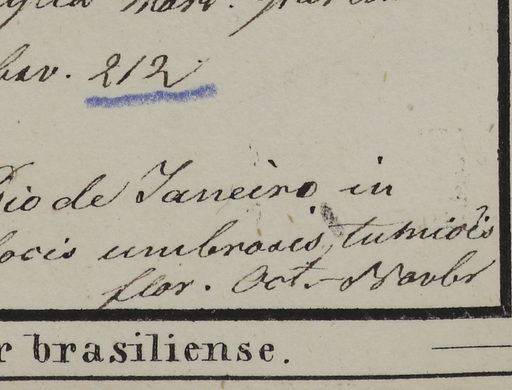 mart.
bav. 212
Rio de Janeiro in
locis umbrosis, humidis
flor. Oct.-Novbr
r brasiliense.